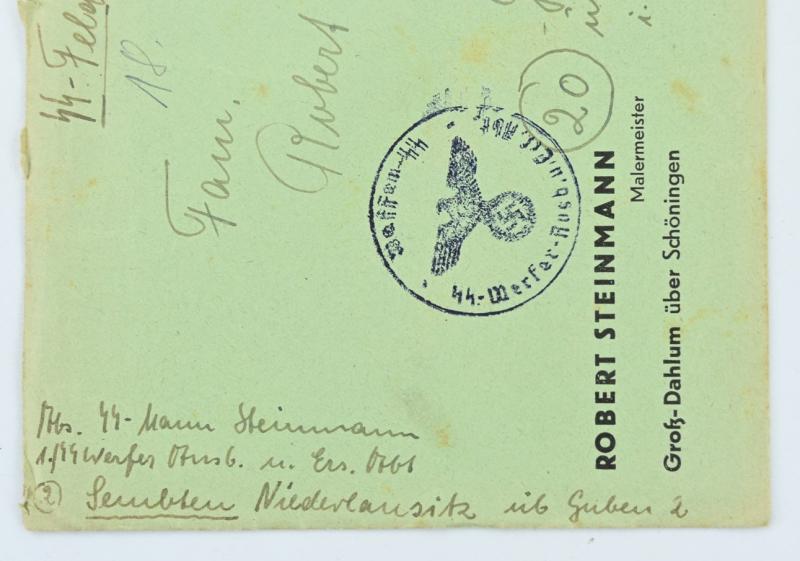 SS-Felp
18.
Fam.
Robert
20
Waffen-SS
SS-Werfer-Ausb.u.Ers.Abt
ROBERT STEINMANN
Malermeister
Groß-Dahlum über Schöningen
Abs. SS-Mann Steinmann
1./SS Werfer Ausb. u. Ers. Abt
2 Sembten Niederlausitz üb Guben 2